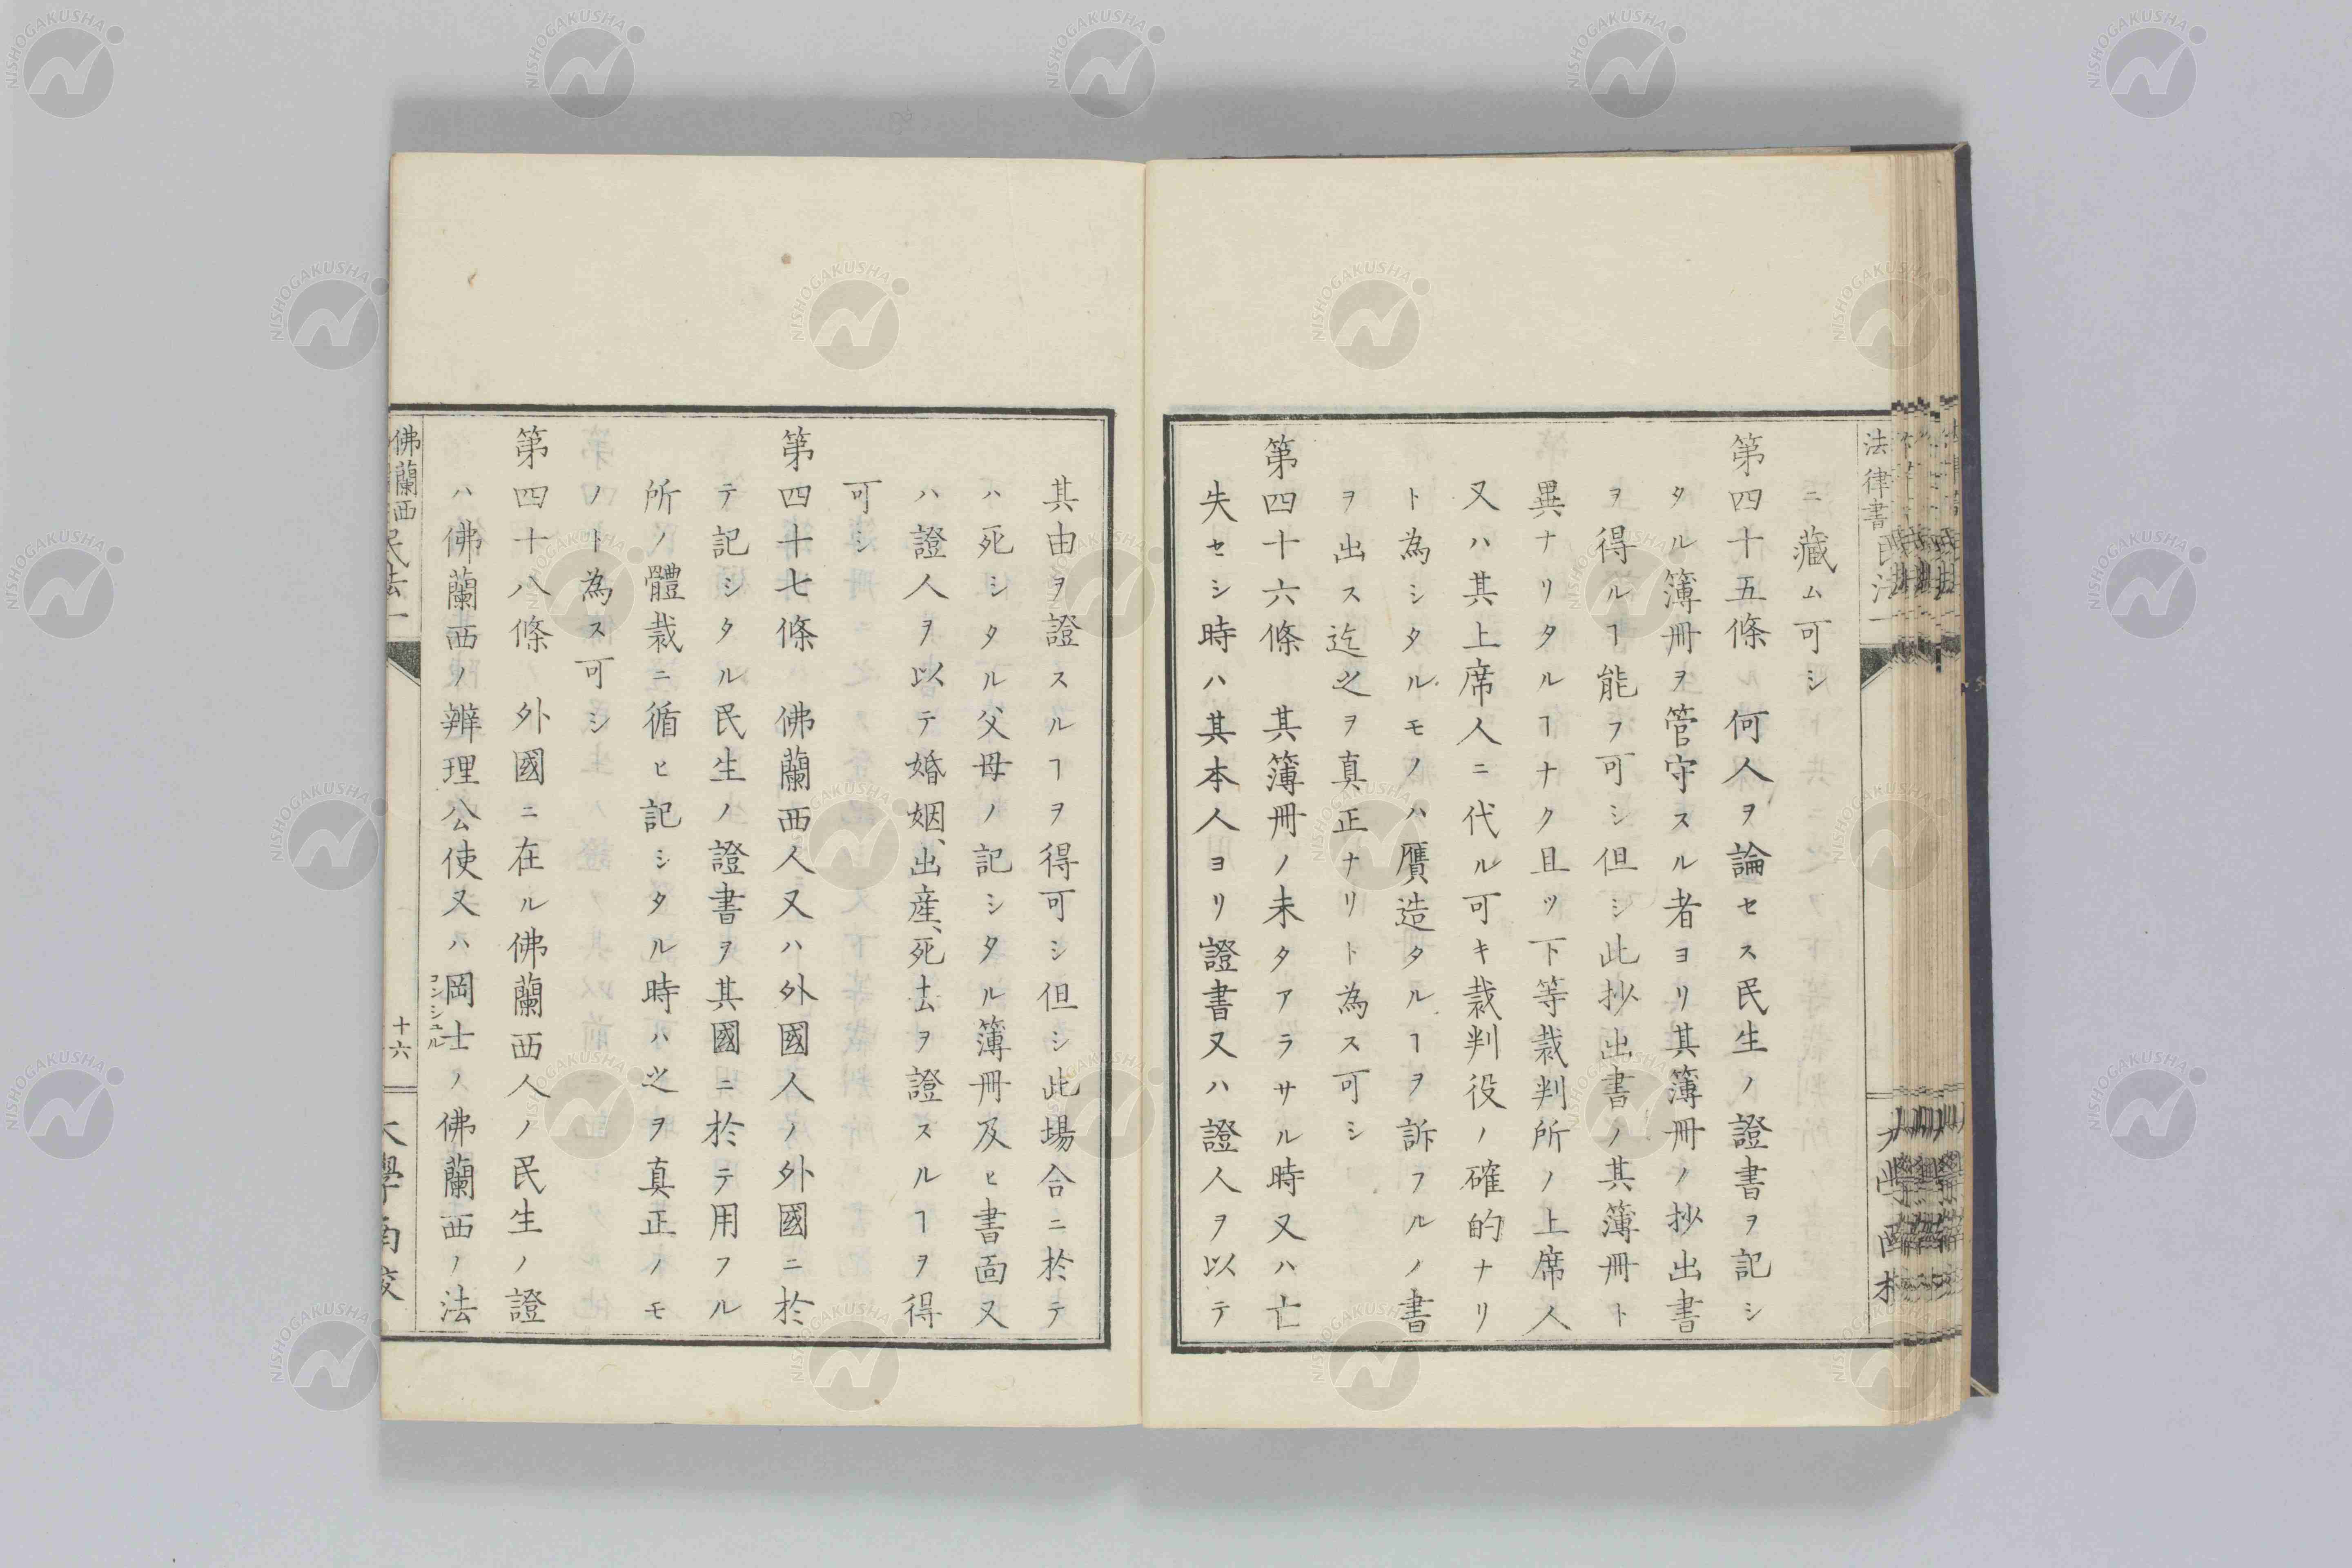 ニ藏ム可シ
第四十五條　何人ヲ論セス民生ノ證書ヲ記シ
タル簿冊ヲ管守スル者ヨリ其簿冊ノ抄出書
ヲ得ルヿ能フ可シ但シ此抄出書ノ其簿冊ト
異ナリタルヿナク且ツ下等裁判所ノ上席人
又ハ其上席人ニ代ル可キ裁判役ノ確的ナリ
ト為シタルモノハ贋造タルヿヲ訴フルノ書
ヲ出ス迄之ヲ真正ナリト為ス可シ
第四十六條　其簿冊ノ未タアラサル時又ハ亡
失セシ時ハ其本人ヨリ證書又ハ證人ヲ以テ
其由ヲ證スルヿヲ得可シ但シ此場合ニ於テ
ハ死シタル父母ノ記シタル簿冊及ヒ書面又
ハ證人ヲ以テ婚姻、出産、死去ヲ證スルヿヲ得
可シ
第四十七條　佛蘭西人又ハ外國人ノ外國ニ於
テ記シタル民生ノ證書ヲ其國ニ於テ用フル
所ノ體裁ニ循ヒ記シタル時ハ之ヲ真正ノモ
ノト為ス可シ
第四十八條　外國ニ在ル佛蘭西人ノ民生ノ證
ハ佛蘭西ノ辨理公使又ハ岡士ノ佛蘭西ノ法
コンシユル
佛蘭西民法一
十六
大學南校
法律書民法一
NISHOGAKUSHA